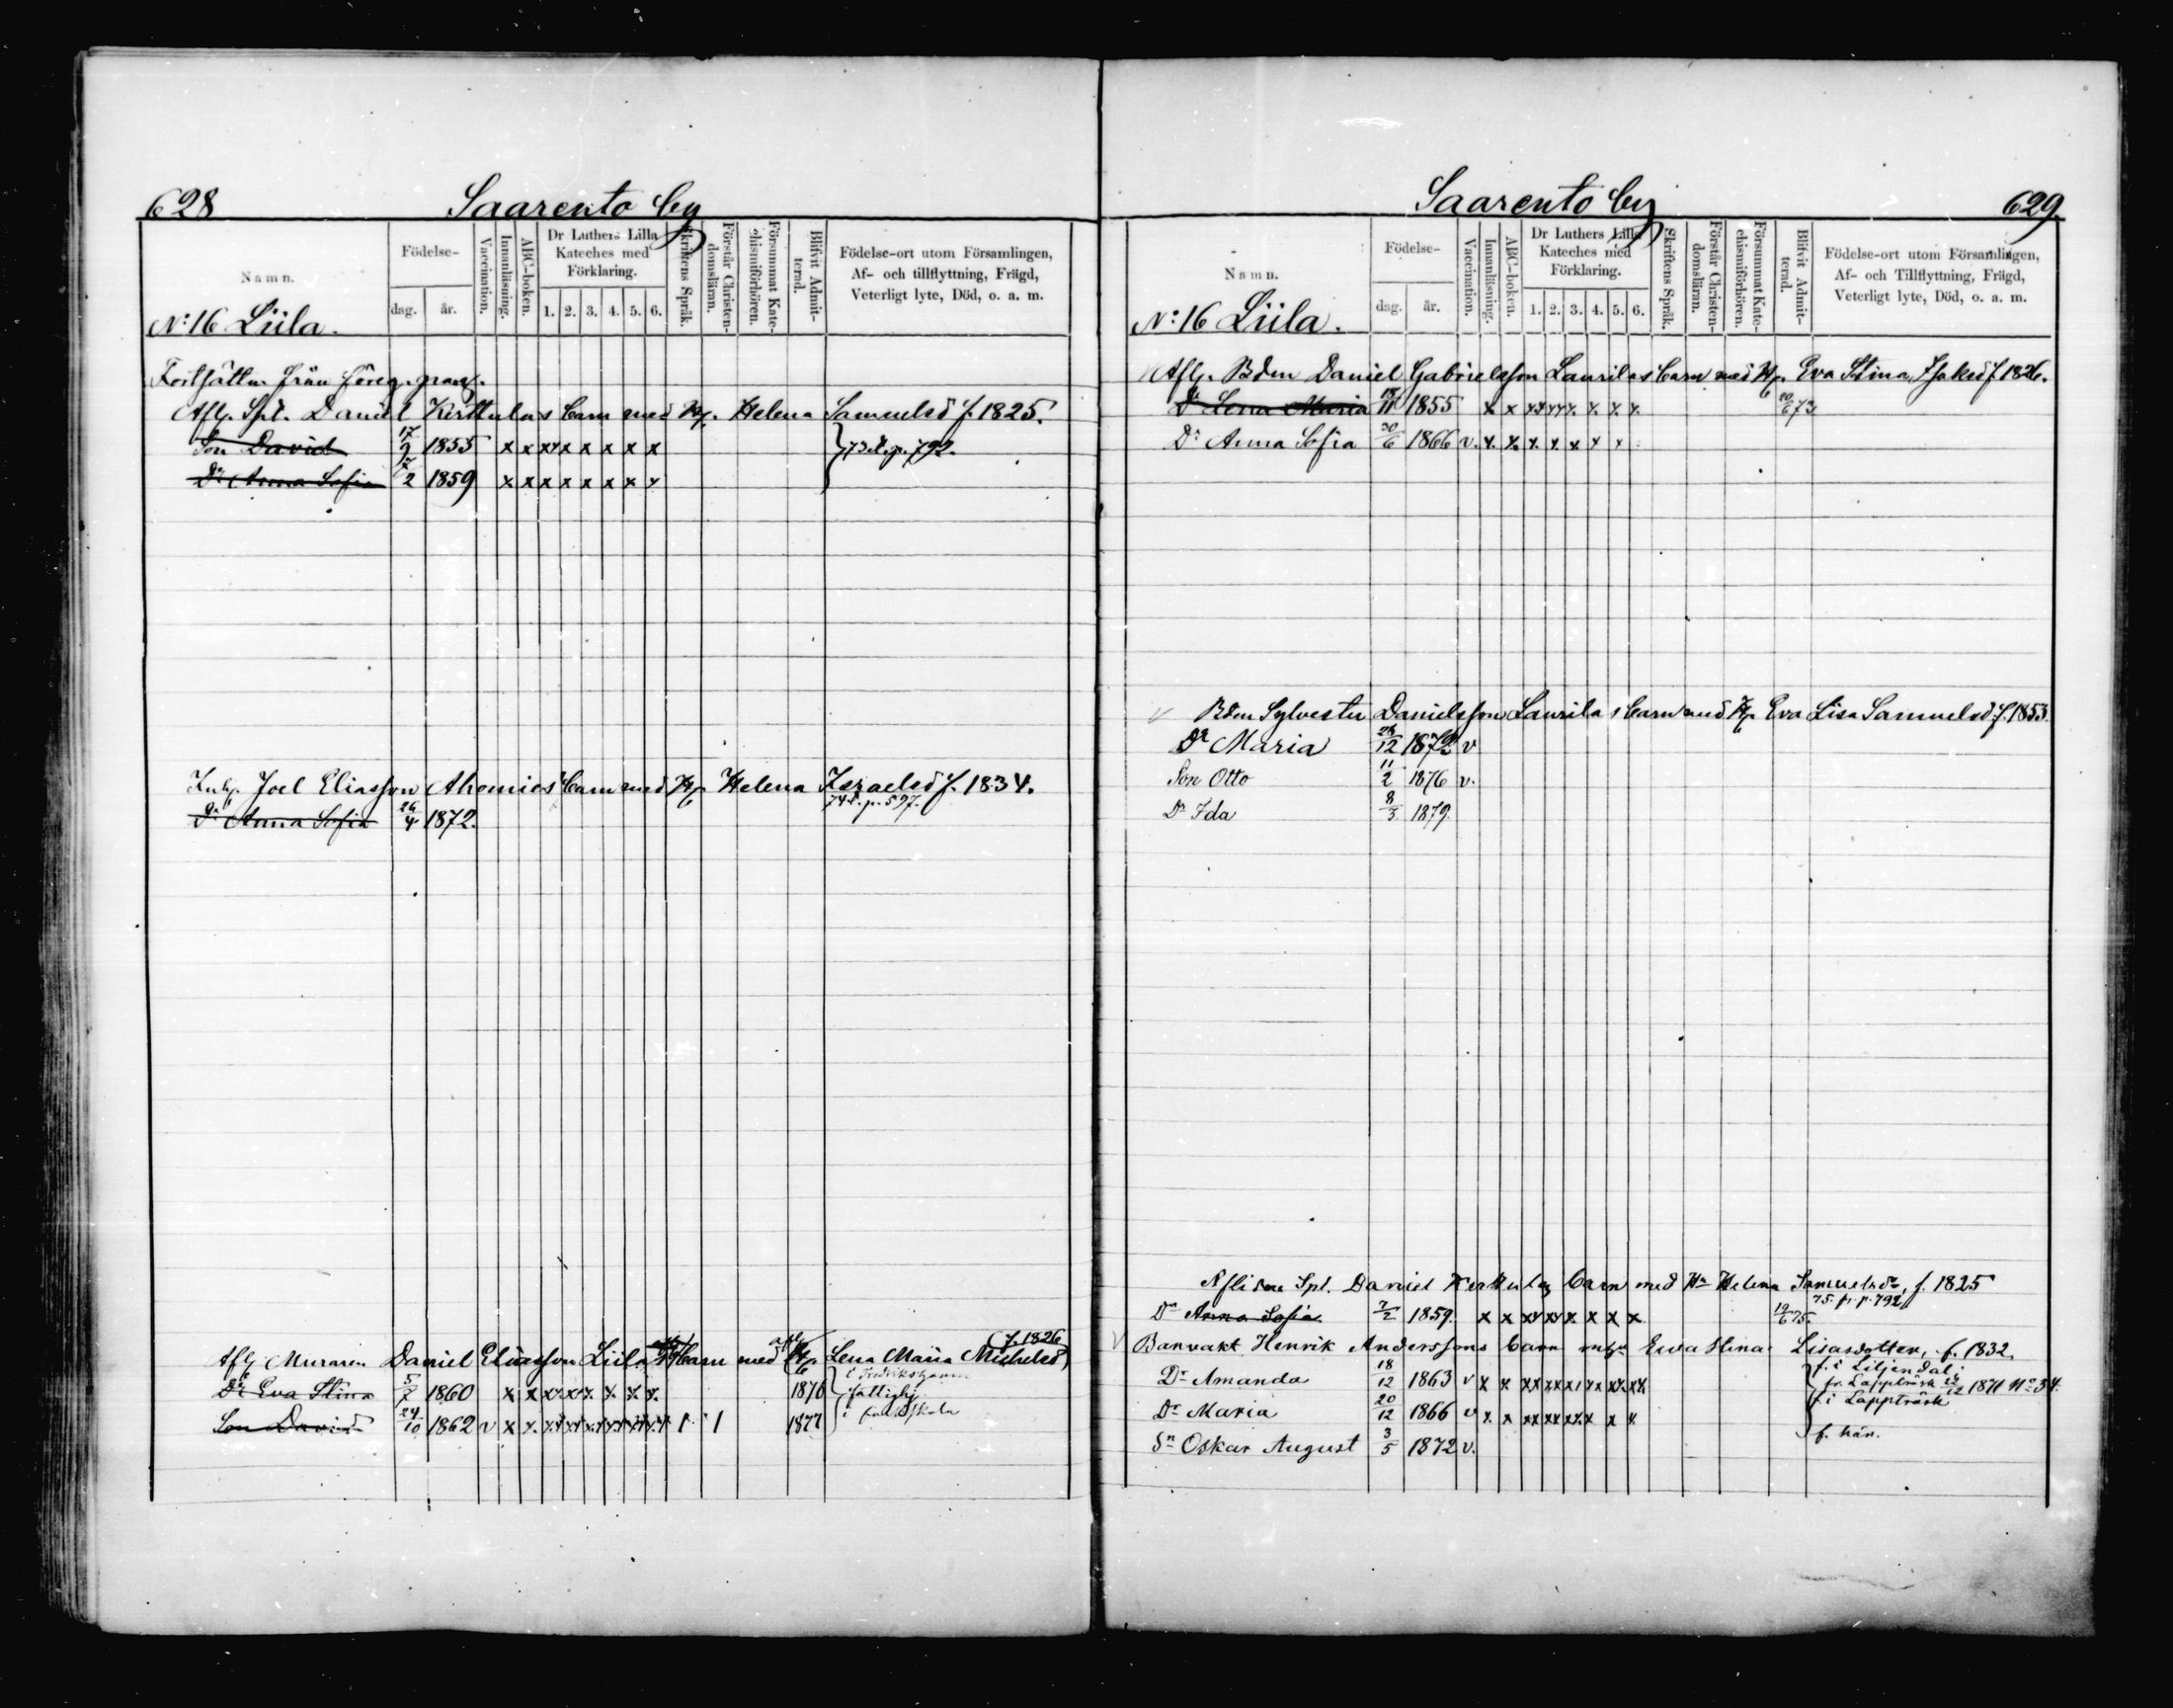 628 Saarento by
Namn. Födelse- dag. år. Vaccination. Innanläsning. ABC-boken. Dr Luthers Lilla Kateches med Förklaring. 1. 2. 3. 4. 5. 6. Skriftens Språk. Förstår Christendomsläran. Försummat Katechismiförhören. Blifvit Admitterad. Födelse-ort utom Församlingen, Af- och tillflyttning, Frägd, Veterligt lyte, Död, o. a. m.
No: 16 Liila.
Fortsättn. från föreg. pag.
Afl. Spt. Daniel Kerttulas barn med Hu. Helena Samuelsd f. 1825.
Son David 17/9 1855 x x x x x x x x x } 73 d. p. 792.
Dr Anna Sofia 7/2 1859 x x x x x x x x
Inh. Joel Eliasson Ahomies barn med Hu Helena Israelsd f. 1834.
Dr Anna Sofia 26/4 1872. 74 d. p. 597.
Afl Muraren Daniel Eliasson Liilas barn med Hu Lena Maria Michelsd (f. 1826)
Dr Eva Stina 5/7 1860 x x x x x x x x 1876 i Fredrikshamn fattighj.
Son David 24/10 1862 v x x x x x x x x 1 1 1877 i skola
Saarento by 629
Namn. Födelse- dag. år. Vaccination. Innanläsning. ABC-boken. Dr Luthers Lilla Kateches med Förklaring. 1. 2. 3. 4. 5. 6. Skriftens Språk. Förstår Christendomsläran. Försummat Katechismiförhören. Blifvit Admitterad. Födelse-ort utom Församlingen, Af- och Tillflyttning, Frägd, Veterligt lyte, Död, o. a. m.
No: 16 Liila.
Afl. Bdn Daniel Gabrielsson Laurilas barn med Hu. Eva Stina Isaksd f 1826.
Dr Lena Maria 11 1855 x x x x x x x x x 73
Dr Anna Sofia 30/6 1866 v. x x x x x x x
v Bdn Sylvester Danielsson Laurilas barn med Hu Eva Lisa Samuelsd f. 1853
Dr Maria 28/12 1872 v
Son Otto 11/2 1876 v.
Dr Ida 8/3 1879.
Aflidne Spt. Daniel Kerttulas barn med Hu Helena Samuelsdr, f. 1825
Dr Anna Sofia 7/2 1859. x x x x x x x x 19/6 75. 75. fr. p. 792
v Banvakt Henrik Anderssons barn m hu Ewa Stina Lisasdotter, f. 1832.
Dr Amanda 18/12 1863 v x x x x x x x x f. i Liljendal; fr. Lappträsk 1871 No 34.
Dr Maria 20/12 1866 v x x x x x x x x f. i Lappträsk
Sn Oskar August 3/5 1872 v. f. här.